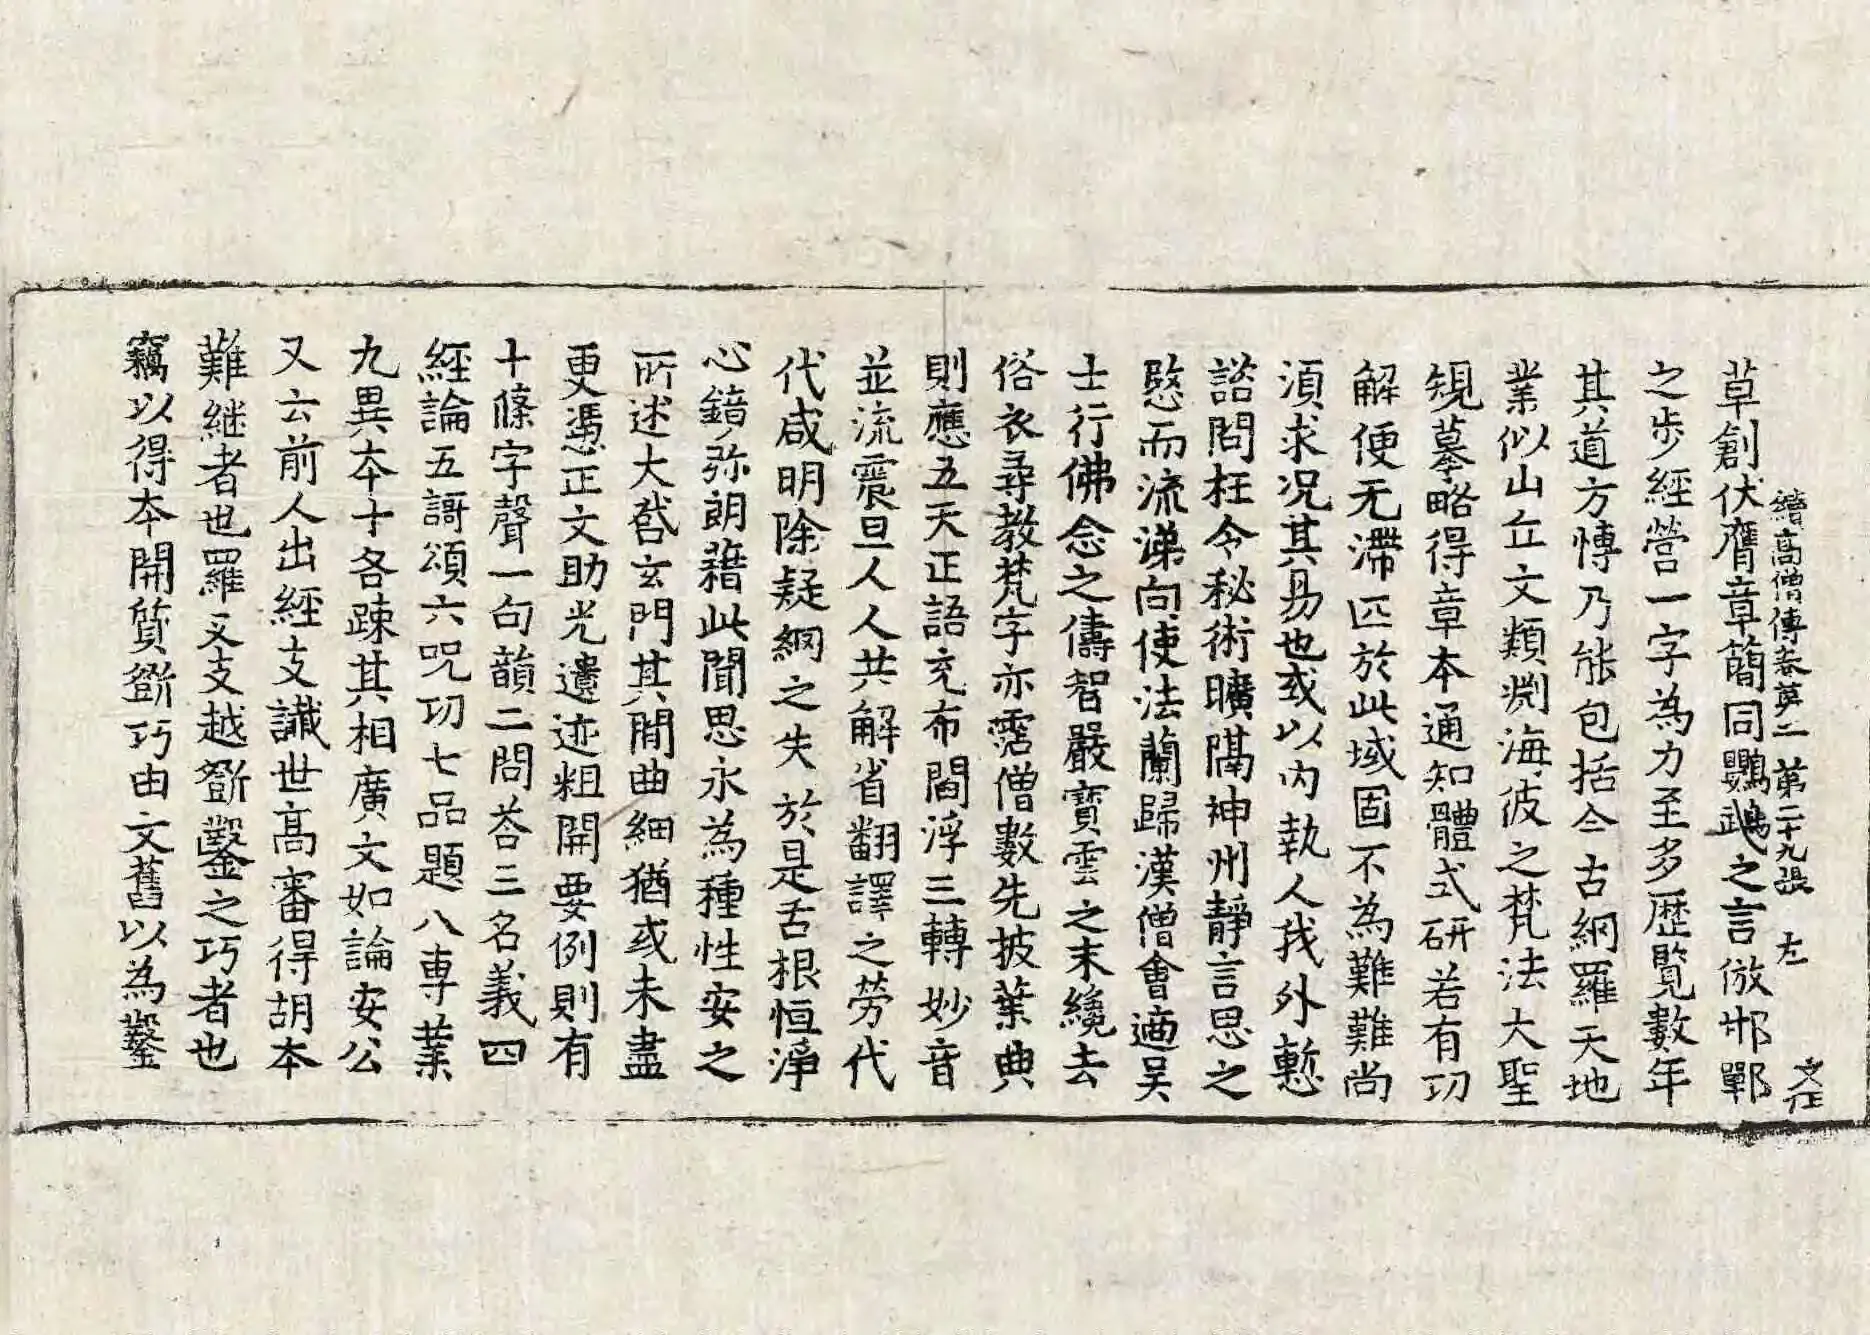 續高僧傳卷苐二　第二十九張　左　文任
草創伏膺章簡同鸚鵡之言倣邯鄲
之步經營一字為力至多歷覽數年
其道方愽乃能包括今古網羅天地
業似山丘文類渕海彼之梵法大聖
規摹略得章本通知體式研若有功
解便无滯匹於此域固不為難難尚
湏求况其易也或以内執人我外慙
諮問枉令秘術曠隔神州靜言思之
愍而流涕向使法蘭歸漢僧會適吴
士行佛念之儔智嚴寶雲之末纔去
俗衣尋教梵字亦霑僧數先披葉典
則應五天正語充布閻浮三轉妙音
並流震旦人人共解省翻譯之勞代
代咸明除疑網之失於是舌根恒淨
心鏡弥朗藉此聞思永為種性安之
所述大啓玄門其閒曲細猶或未盡
更憑正文助光遺迹粗開要例則有
十條字聲一句韻二問荅三名義四
經論五謌頌六呪功七品題八專業
九異本十各踈其相廣文如論安公
又云前人出經支讖世高審得胡本
難継者也羅叉支越斵鑿之巧者也
竊以得本開質斵巧由文舊以為鑿